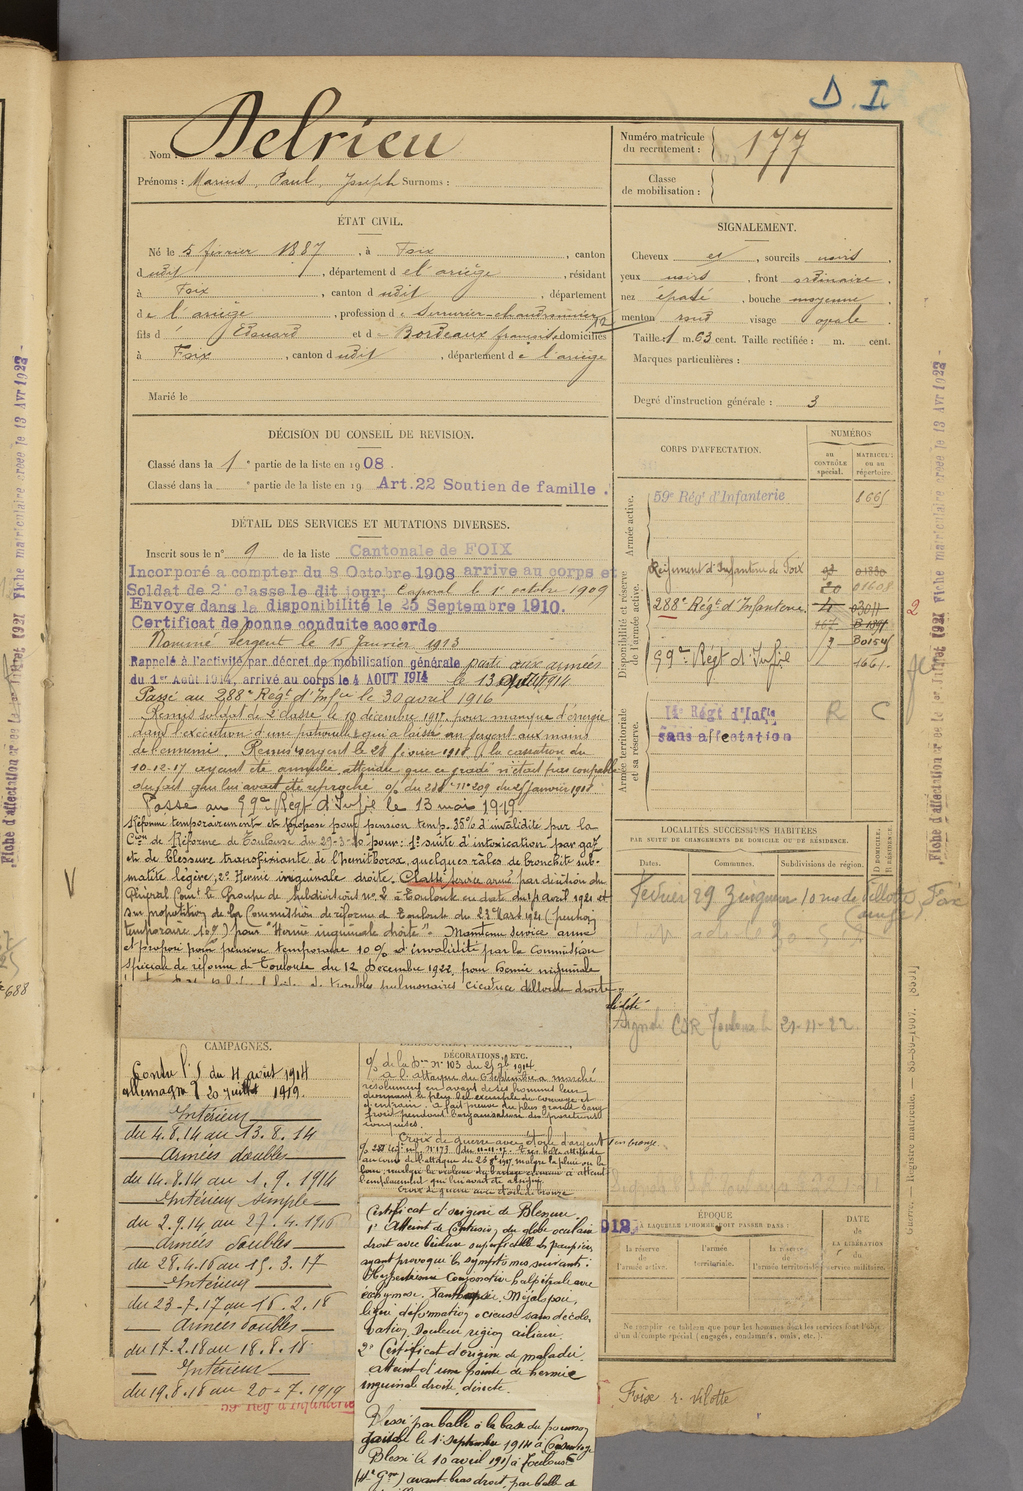 D. I.
Nom : Delrieu
Prénoms : Marius, Paul, Joseph Surnoms :
Numéro matricule du recrutement : 177
Classe de mobilisation :
ÉTAT CIVIL.
Né le 5 février 1887, à Foix, canton
dudit, département de l'ariège, résidant
à Foix, canton dudit, département
de l'ariège, profession de serrurier-chaudronnier
fils d'Edouard et de Bordeaux françoise domiciliés
à Foix, canton dudit, département de l'ariège
Marié le
SIGNALEMENT.
Cheveux et, sourcils noirs,
yeux noirs, front ordinaire,
nez épaté, bouche moyenne,
menton rond visage ovale.
Taille : 1 m. 63 cent. Taille rectifiée : m. cent.
Marques particulières :
Degré d'instruction générale : 3
DÉCISION DU CONSEIL DE REVISION.
Classé dans la 1e partie de la liste en 1908.
Classé dans la e partie de la liste en 19 Art.22 Soutien de famille.
DÉTAIL DES SERVICES ET MUTATIONS DIVERSES.
Inscrit sous le n° 9 de la liste Cantonale de FOIX
Incorporé a compter du 8 Octobre 1908 arrive au corps et
Soldat de 2e classe le dit jour; Caporal le 1er octobre 1909
Envoyé dans la disponibilité le 25 Septembre 1910.
Certificat de bonne conduite accordé
Nommé Sergent le 15 Janvier 1913
Rappelé à l'activité par décret de mobilisation générale parti aux armées
du 1er Août 1914, arrivé au corps le 4 AOUT 1914 le 13 1914
Passé au 288e Régt d'Infie le 30 avril 1916
Remis soldat de 2e classe le 10 décembre 1917 pour manque d'énergie
dans l'exécution d'une patrouille qui a laissé un sergent aux mains
de l'ennemi. Remis sergent le 28 février 1918 (la cassation du
10-12-17 ayant été annulée, attendu que ce gradé n'était pas coupable
du fait qui lui avait été reproché o/ du 288e n° 209 du 25 Janvier 1918
Passé au 99e Régt d'Infie le 13 mai 1919.
Réformé temporairement et proposé pour pension temp. 35% d'invalidité par la
Con de Réforme de Toulouse du 29-3-20 pour: 1° suite d'intoxication par gaz
et de blessure transfixiante de l'hémithorax, quelques râles de bronchite sub-
matité légère, 2° Hernie inguinale droite. Classé service armé par décision du
Général Comt le Groupe de Subdivisions n° 2 à Toulouse en date du 14 avril 1921 et
sur proposition de la Commission de réforme de Toulouse du 23 Mars 1921 (pension
temporaire 10%) pour "Hernie inguinale droite". Maintenu service armé
et proposé pour pension temporaire 10% d'invalidité par la Commission
Spéciale de réforme de Toulouse du 12 Décembre 1922, pour hernie inguinale
de troubles pulmonaires cicatrice droite
CORPS D'AFFECTATION.
NUMÉROS
au CONTRÔLE spécial.
MATRICULE ou au répertoire.
Armée active.
59e Régt d'Infanterie
Disponibilité et réserve de l'armée active.
Régiment d'Infanterie de Foix
20 01608
288e Régt d'Infanterie
99e Régt d'Infie
1661.
2
Armée territoriale et sa réserve.
14e Régt d'Infie R C
sans affectation
LOCALITÉS SUCCESSIVES HABITÉES
PAR SUITE DE CHANGEMENTS DE DOMICILE OU DE RÉSIDENCE.
Dates. Communes. Subdivisions de région. D. DOMICILE. R. RÉSIDENCE.
Février 29 10 rue de Villotte Foix
(ariège)
CSR Toulouse 21-11-22
CAMPAGNES.
Contre l' du 4 août 1914
allemagne 20 juillet 1919.
Intérieur
du 4.8.14 au 13.8.14
armées doubles
du 14.8.14 au 1.9.1914
Intérieur simple
du 2.9.14 au 27.4.1916
armées doubles
du 28.4.16 au 15.3.17
Intérieur
du 23-7.17 au 16.2.18
armées doubles
du 17.2.18 au 18.8.18
Intérieur
du 19.8.18 au 20-7.1919
59e Rég d'Infanterie
DÉCORATIONS, ETC.
o/ de la Don n° 103 du 27 7bre 1914.
à l'attaque du 6 septembre a marché
résolument en avant de ses hommes leur
donnant le plus bel exemple de courage et
d'entrain. a fait preuve du plus grand sang
froid pendant l'organisation des positions
conquises.
Croix de guerre avec étoile d'argent
Croix de guerre avec étoile de bronze
Certificat d'origine de Blessure.
1° Atteint de Contusion du globe oculaire
droit avec brûlure superficielle des paupières
ayant provoqué les symptômes suivants:
Hyperhémie Conjonctive palpébrale avec
échymose.
légère déformation
Douleur région ciliaire.
2° Certificat d'origine de maladie.
atteint d'une pointe de hernie
inguinale droite, directe.
Blessé par balle à la base du poumon
gauche le 1er septembre 1914 à
Blessé le 10 avril 1917 à
avant-bras droit, par balle de
1912
ÉPOQUE
À LAQUELLE L'HOMME DOIT PASSER DANS :
la réserve de l'armée active.
l'armée territoriale.
la réserve de l'armée territoriale.
DATE DE LA LIBÉRATION du service militaire.
Ne remplir ce tableau que pour les hommes dont les services font l'objet
d'un décompte spécial (engagés, condamnés, omis, etc.).
Foix r. vilotte
Fiche d'affectation créée le 1er Juillet 1921 Fiche matriculaire créée le 13 Avr 1922
Fiche d'affectation créée le 1er Juillet 1921 Fiche matriculaire créée le 13 Avr 1922
Guerre. — Registre matricule.
V
688